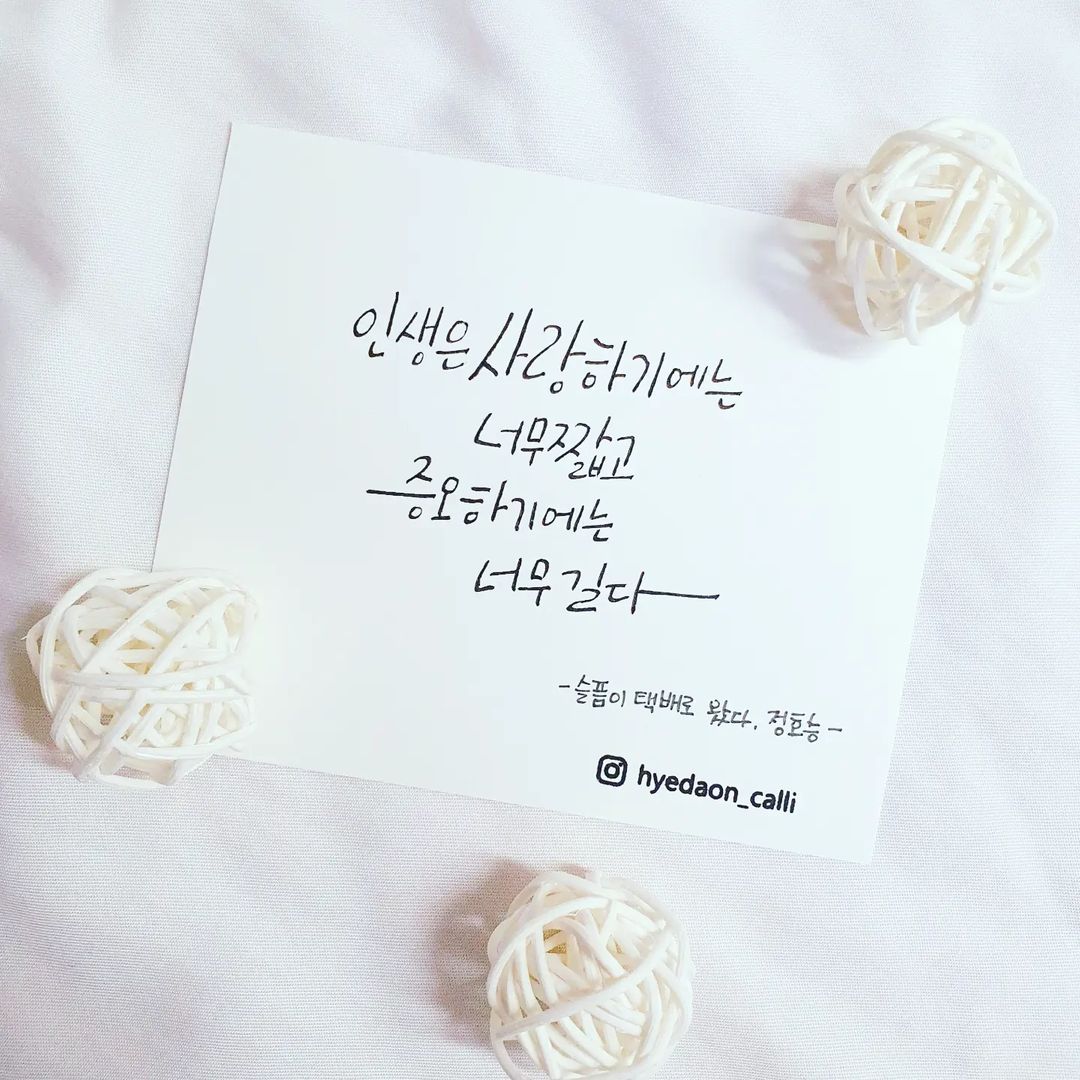 인생은 사랑하기에는
너무 짧고
증오하기에는
너무 길다
-슬픔이 택배로 왔다. 정호승-
hyedaon_calli